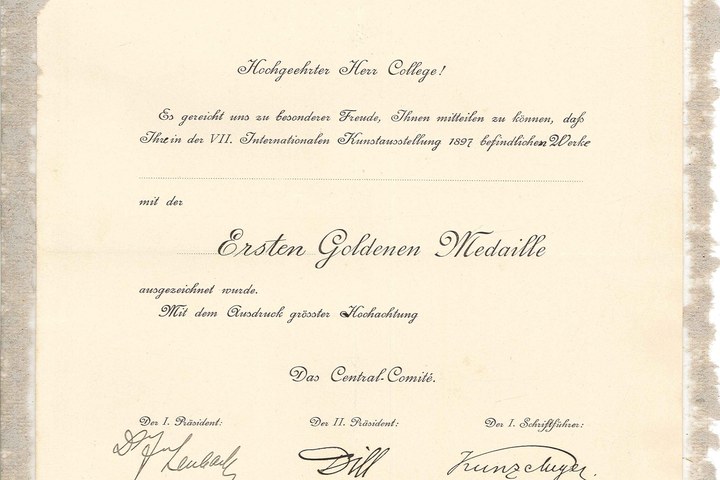 Hochgeehrter Herr College!
Es gereicht uns zu besonderer Freude, Ihnen mitteilen zu können, daß
Ihre in der VII. Internationalen Kunstausstellung 1897 befindlichen Werke
mit der
Ersten Goldenen Medaille
ausgezeichnet wurde.
Mit dem Ausdruck grösster Hochachtung
Das Central-Comité.
Der I. Präsident: Der II. Präsident: Der I. Schriftführer:
Lenbach Dill Kunz Meyer.